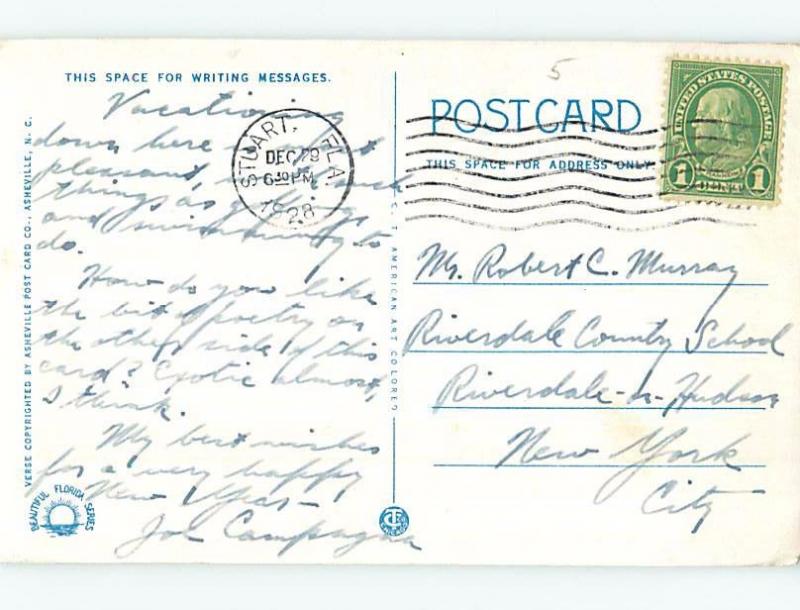 THIS SPACE FOR WRITING MESSAGES.
Vacationing
down here is most
pleasant, with such
things as
and swimming to
do.
How do you like
the bit of poetry on
the other side of this
card? Exotic almost,
I think.
My best wishes
for a very happy
New Year —
Joe Campagna
VERSE COPYRIGHTED BY ASHEVILLE POST CARD CO., ASHEVILLE, N. C.
BEAUTIFUL FLORIDA SERIES
STUART, FLA.
DEC 29
6 30 PM
1928
C. T. AMERICAN ART COLORED
5
POST CARD
THIS SPACE FOR ADDRESS ONLY
UNITED STATES POSTAGE
1 CENT 1
Mr. Robert C. Murray
Riverdale Country School
Riverdale-n-Hudson
New York
City